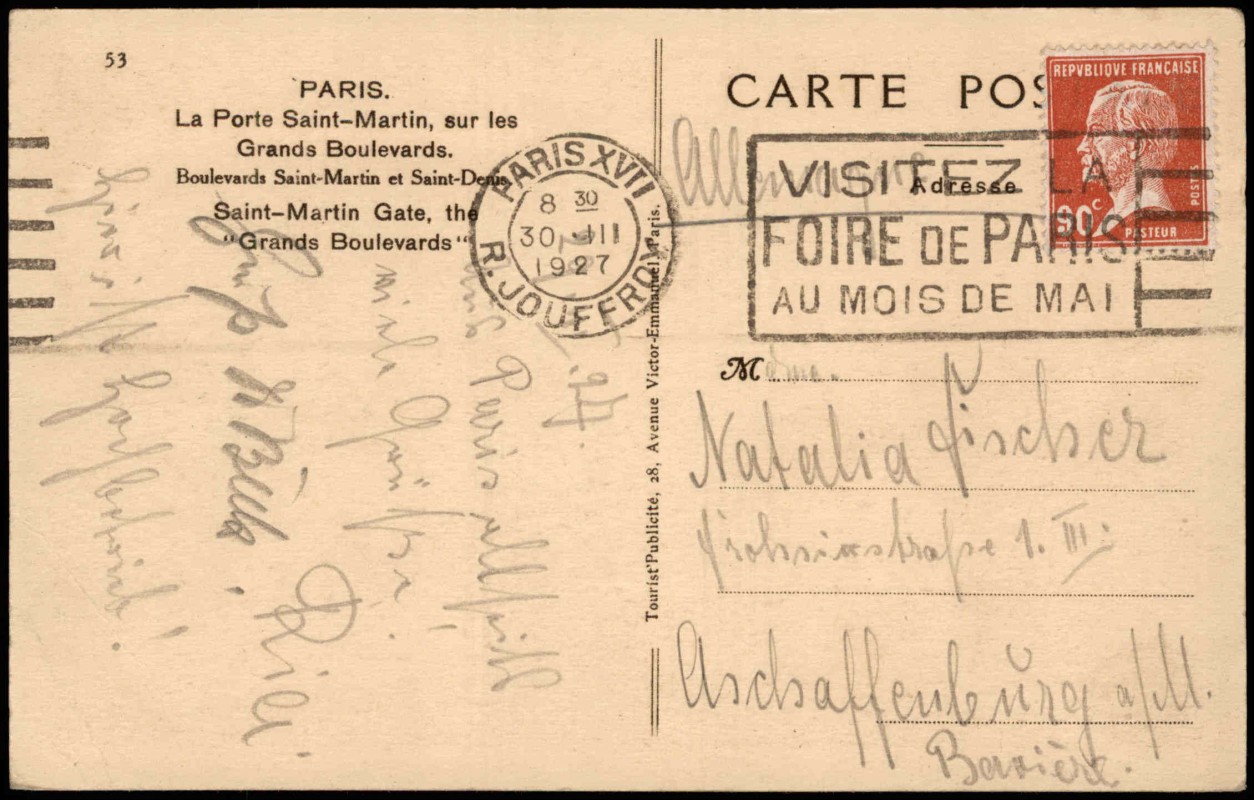 53
PARIS.
La Porte Saint-Martin, sur les
Grands Boulevards.
Boulevards Saint-Martin et Saint-Denis
Saint-Martin Gate, the
"Grands Boulevards"
PARIS XVII
8 30
30 · III
1927
R. JOUFFROY
CARTE POS
Adresse
REPVBLIQUE FRANÇAISE
POSTES
90c
PASTEUR
VISITEZ LA
FOIRE DE PARIS
AU MOIS DE MAI
Allemagne
Tourist'Publicité, 28, Avenue Victor-Emmanuel, Paris.
Mdme.
Natalia Fischer
Frohsinstraße 1. III.
Aschaffenburg a/M.
Bavière.
27.
Paris
viele Grüße